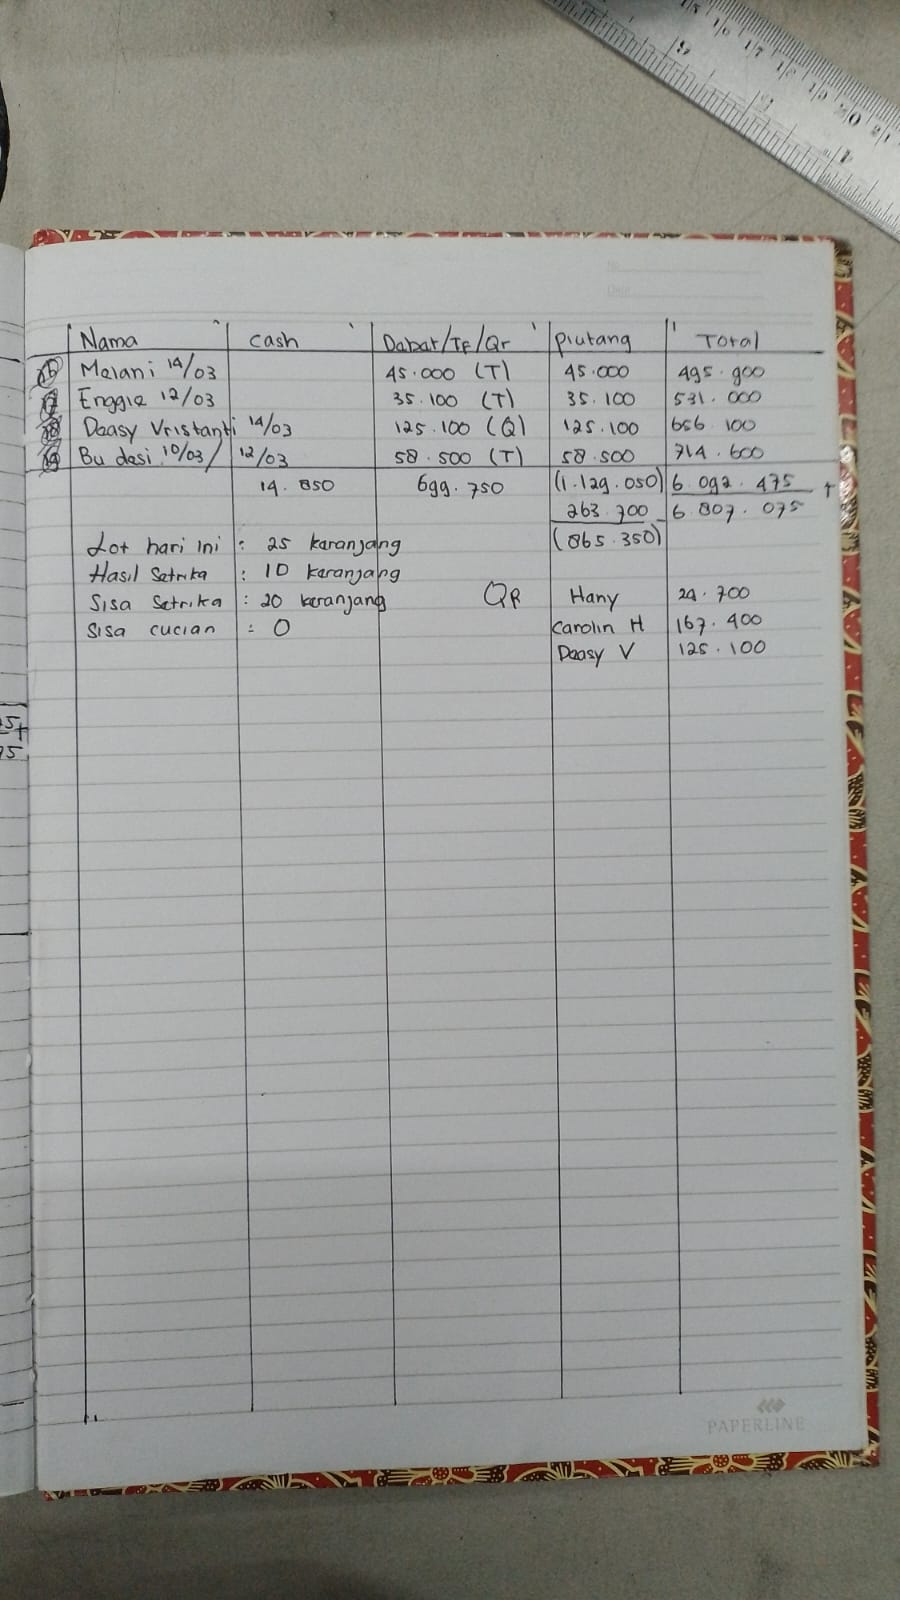 Nama cash Debet/TF/Qr piutang Total
Melani 14/03 45.000 (T) 45.000 495.900
Enggie 12/03 35.100 (T) 35.100 531.000
Deasy Vristanti 14/03 125.100 (Q) 125.100 656.100
Bu desi 10/03/ 12/03 58.500 (T) 58.500 714.600
14.850 699.750 (1.129.050) 6.092.475 +
263.700 - 6.807.075
Lot hari ini : 25 keranjang (865.350)
Hasil Setrika : 10 keranjang
Sisa Setrika : 20 keranjang QR Hany 24.700
Sisa cucian : 0 Carolin H 167.400
Deasy V 125.100
PAPERLINE